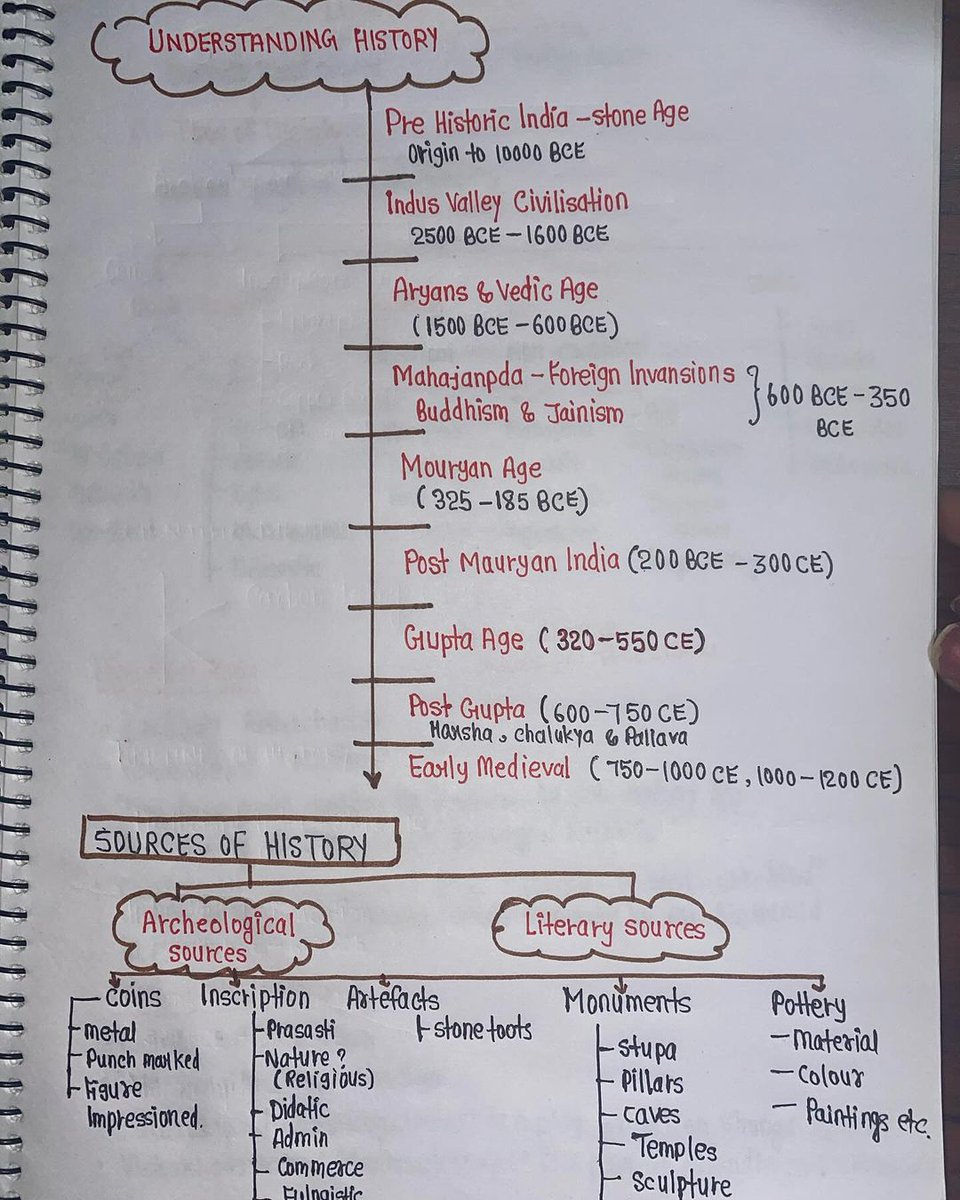 UNDERSTANDING HISTORY
Pre Historic India - stone Age
Origin to 10000 BCE
Indus Valley Civilisation
2500 BCE - 1600 BCE
Aryans & Vedic Age
(1500 BCE - 600 BCE)
Mahajanpda - Foreign Invansions
Buddhism & Jainism
} 600 BCE - 350
BCE
Mouryan Age
(325 - 185 BCE)
Post Mauryan India (200 BCE - 300 CE)
Gupta Age (320-550 CE)
Post Gupta (600-750 CE)
Harsha, chalukya & Pallava
Early Medieval (750-1000 CE, 1000-1200 CE)
SOURCES OF HISTORY
Archeological
sources
Literary sources
Coins
metal
Punch marked
Figure
Impressioned.
Inscription
Prasasti
Nature?
(Religious)
Didatic
Admin
Commerce
Artefacts
stone toots
Monuments
Stupa
Pillars
caves
Temples
Sculpture
Pottery
- Material
- Colour
- Paintings etc.